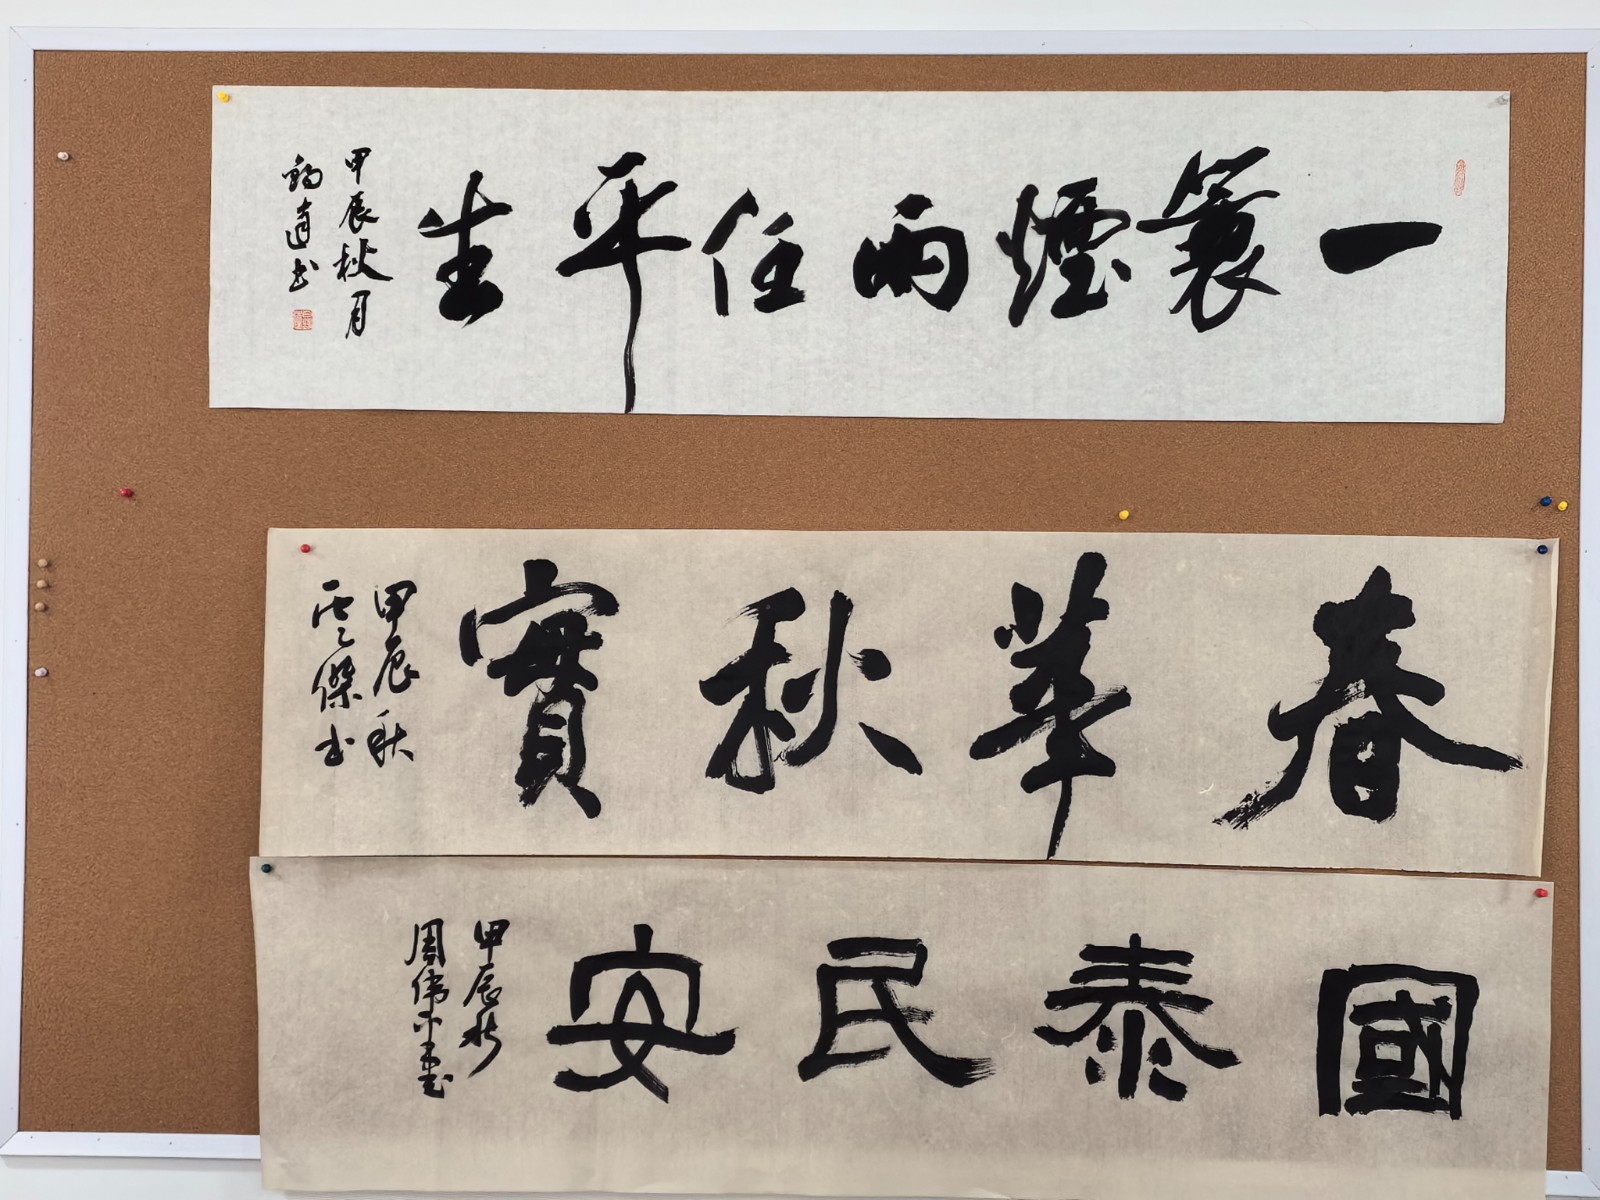 一蓑煙雨任平生
甲辰秋月
春華秋實
甲辰秋
雲傑书
國泰民安
甲辰秋
周偉平書